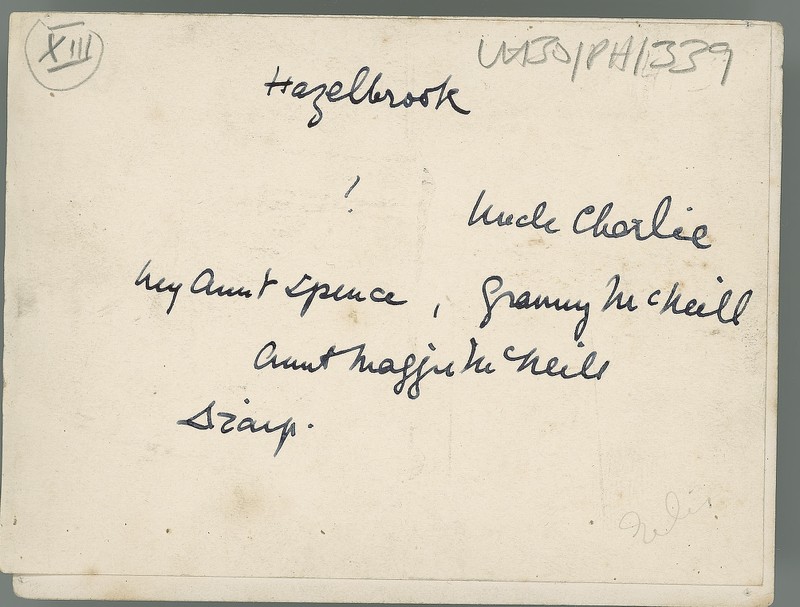 XIII
UA30/PH/1339
Hazelbrook
!
Uncle Charlie
my Aunt Spence, Granny McNeill
Aunt Maggie McNeill